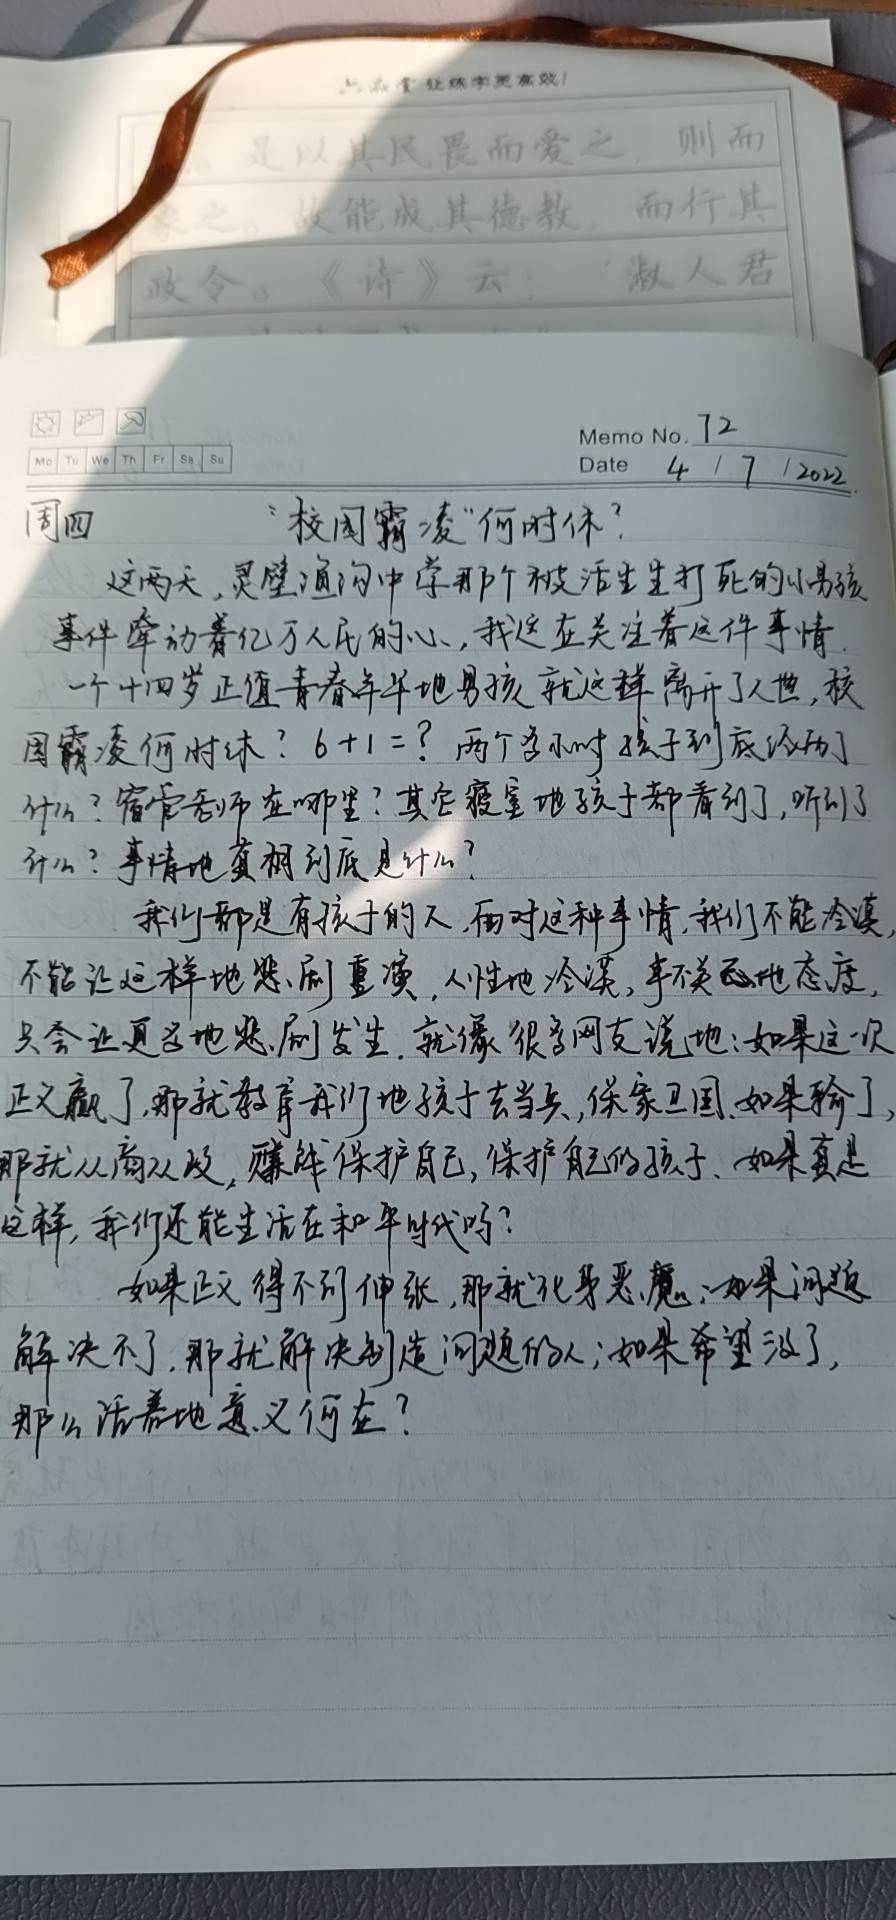 六品堂 让练字更高效!
是以其民畏而爱之,则而
象之。故能成其德教,而行其
政令。《诗》云:淑人君
Memo No. 72
Mo Tu We Th Fr Sa Su
Date 4/7/2022
周四 "校园霸凌"何时休?
这两天,灵璧渔沟中学那个被活生生打死的小男孩
事件牵动着亿万人民的心,我这在关注着这件事情.
一个十四岁正值青春年华地男孩就这样离开了人世,校
园霸凌何时休?6+1=?两个多小时孩子到底经历了
什么?宿管老师在哪里?其它寝室地孩子都看到了,听到了
什么?事情地真相到底是什么?
我们都是有孩子的人,面对这种事情,我们不能冷漠,
不能让这样地悲剧重演,人性地冷漠,事不关己地态度,
只会让更多地悲剧发生.就像很多网友说地:如果这一次
正义赢了,那就教育我们地孩子去当兵,保家卫国.如果输了,
那就从商从政,赚钱保护自己,保护自己的孩子、如果真是
这样,我们还能生活在和平时代吗?
如果正义得不到伸张,那就化身恶魔;如果问题
解决不了,那就解决制造问题的人;如果希望没了,
那么活着地意义何在?